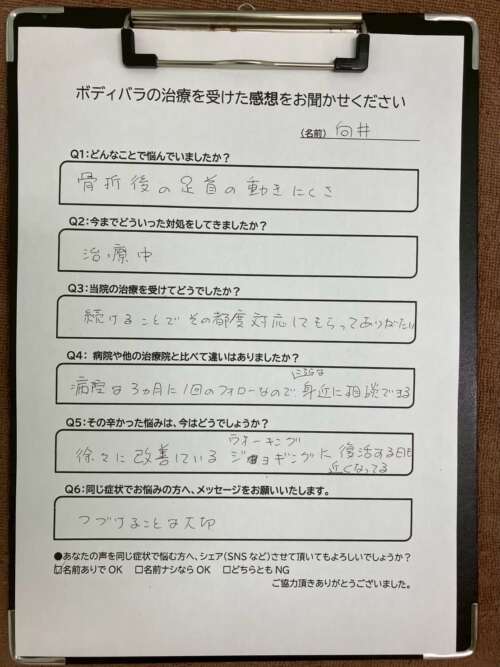 ボディバラの治療を受けた感想をお聞かせください
(名前) 向井
Q1:どんなことで悩んでいましたか?
骨折後の足首の動きにくさ
Q2:今までどういった対処をしてきましたか?
治療中
Q3:当院の治療を受けてどうでしたか?
続けることでその都度対応してもらってありがたい
Q4: 病院や他の治療院と比べて違いはありましたか?
病院は3ヵ月に1回のフォローなので、身近に相談できる
Q5:その辛かった悩みは、今はどうでしょうか?
ウォーキング
徐々に改善している ジョギングに復活する日も
近くなってる
Q6:同じ症状でお悩みの方へ、メッセージをお願いいたします。
つづけることは大切
●あなたの声を同じ症状で悩む方へ、シェア(SNSなど)させて頂いてもよろしいでしょうか?
☑名前ありでOK □名前ナシならOK □どちらともNG
ご協力頂きありがとうございました。